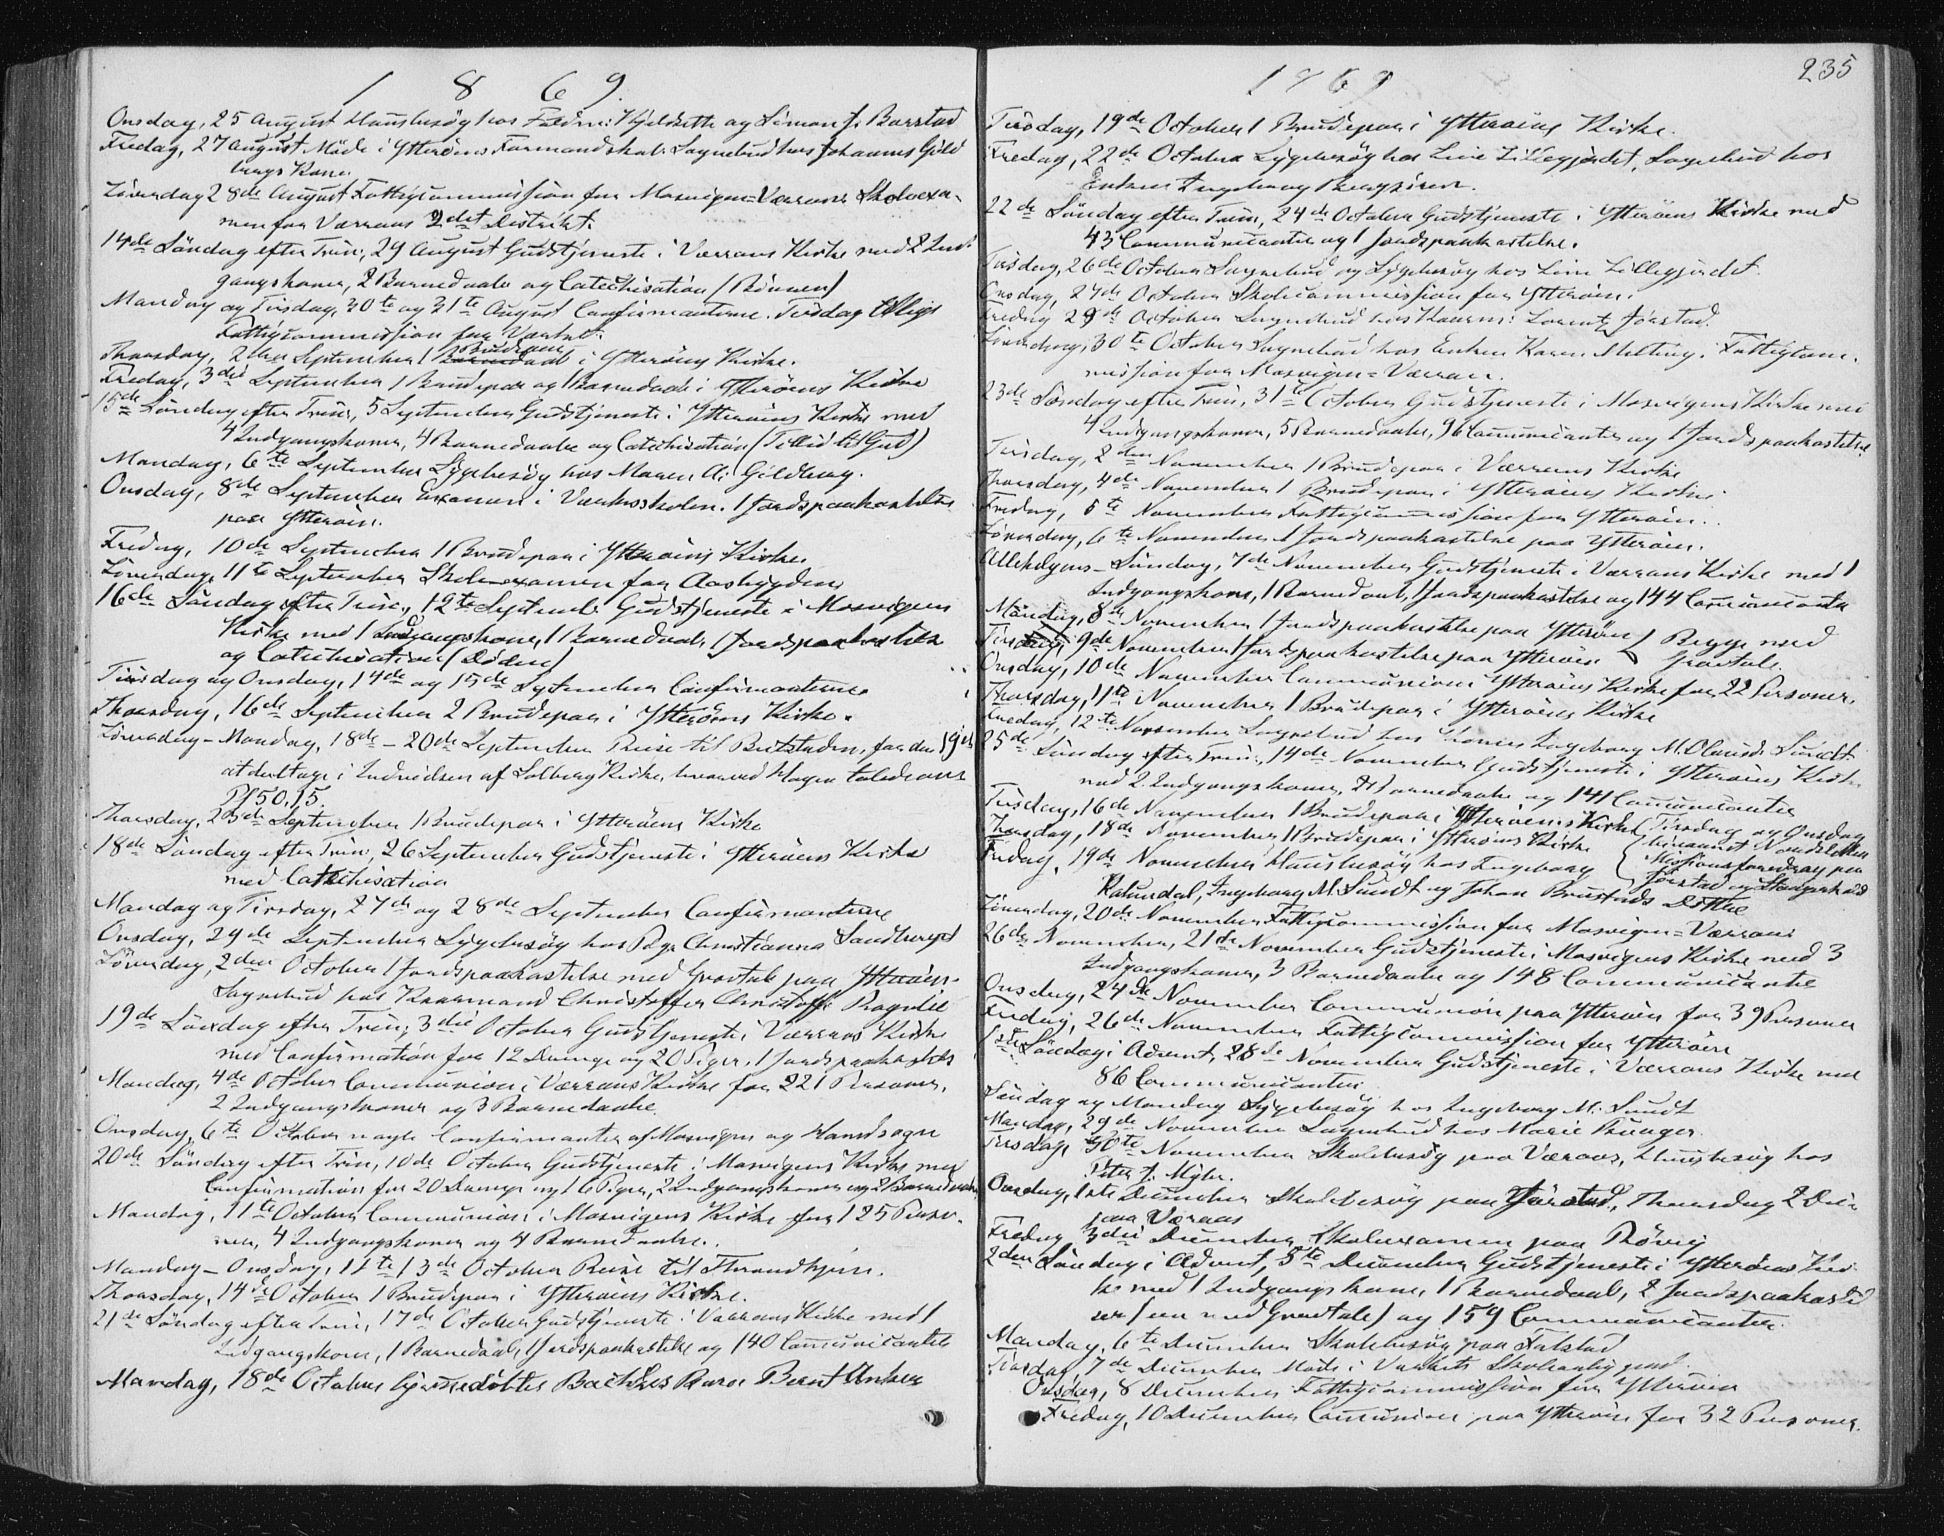 1869.
Onsdag, 25 August Huusbesøg hos Fædrn: Hjeldsette og Simon J. Barstad
Fredag, 27 August Møde i Ytterøens Formandskab. Sognebud hos Johannes Gild
bergs Kone.
Løverdag 28de August Fattigcommission for Mosvigen=Værrans Skoleexa-
men for Værrans 2det Distrikt.
14de Søndag efter Trin., 29 August Gudstjeneste i Værrans Kirke med 2 Ind-
gangskoner, 2 Barnedaab og Catechisation (Bønnen)
Mandag og Tirsdag, 30te og 31te August Confirmanterne. Tirsdag tillige
Fattigcommission for Værket.
Thorsdag, 2den September 1 Brudepar i Ytterøens Kirke.
Fredag, 3die September 1 Brudepar og 1 Barnedaab i Ytterøens Kirke
15de Søndag efter Trin., 5 September Gudstjeneste i Ytterøens Kirke med
4 Indgangskoner, 4 Barnedaabe og Catechisation (Tillid til Gud)
Mandag, 6te September Sygebesøg hos Maren A. Gildberg.
Onsdag, 8de September Examen i Værksskolen. 1 Jordspaakastelse
paa Ytterøen.
Fredag, 10de September 1 Brudepar i Ytterøens Kirke.
Løverdag, 11te September Skoleexamen for Aasbygden
16de Søndag efter Trin., 12te Septemb. Gudstjeneste i Mosvigens
Kirke med 1 Indgangskone, 1 Barnedaab, 1 Jordspaakastelse
og Catechisation (Døden)
Tirsdag og Onsdag, 14de og 15de September Confirmanterne.
Thorsdag, 16de September 2 Brudepar i Ytterøens Kirke.
Løverdag-Mandag, 18de-20de September Reise til Beitstaden, for den 19de
at deltage i Indvielsen af Solberg Kirke, hvorved Hagen talede over
Ps 50, 15.
Thorsdag, 23de September 1 Brudepar i Ytterøens Kirke
18de Søndag efter Trin, 26 September Gudstjeneste i Ytterøens Kirke
med Catechisation
Mandag og Tirsdag, 27de og 28de September Confirmanterne
Onsdag, 29de September Sygebesøg hos Pige Christianna Sandberget
Løverdag, 2den October 1 Jordspaakastelse med Gravtale paa Ytterøen.
Sognebud hos Kaarmand Christoffer Christoffs. Ragnlie
19de Søndag efter Trin, 3die October Gudstjeneste i Værrans Kirke
med Confirmation for 12 Drenge og 20 Piger. 1 Jordspaakastelse
Mandag, 4de October Communion i Værrans Kirke for 221 Personer,
2 Indgangskoner og 3 Barnedaabe.
Onsdag, 6te October nogle Confirmanter af Mosvigen og Hovedsogn
20de Søndag efter Trin, 10de October Gudstjeneste i Mosvigens Kirke med
Confirmation for 20 Drenge og 16 Piger, 2 Indgangskoner og 2 Barnedaabe
Mandag, 11te October Communion i Mosvigens Kirke for 125 Perso-
ner, 4 Indgangskoner og 4 Barnedaabe.
Mandag-Onsdag, 11te-13de October Reise til Throndhjem.
Thorsdag, 14de October 1 Brudepar i Ytterøens Kirke.
21de Søndag efter Trin, 17de October Gudstjeneste i Værrans Kirke med 1
Indgangskone, 1 Barnedaab, 1 Jordspaakastelse og 140 Communicanter
Mandag, 18de October hjemmedøbtes Bachkes Barn Bernt Anker
1869
235
Tirsdag, 19de October 1 Brudepar i Ytterøens Kirke.
Fredag, 22de October Sygebesøg hos Line Lillegjerdet, Sognebud hos
Enken Ingeborg Bergsiren.
22de Søndag efter Trin, 24de October Gudstjeneste i Ytterøens Kirke med
43 Communicanter og 1 Jordspaakastelse.
Tirsdag, 26de October Sognebud og Sygebesøg hos Line Lillegjerdet.
Onsdag, 27de October Skolecommission for Ytterøen.
Fredag 29de October Sognebud hos Kaarm: Lorentz Jørstad.
Løverdag, 30te October Sognebud hos Enken Karen Melting. Fattigcom-
mission for Mosvigen=Værran.
23de Søndag efter Trin, 31te October Gudstjeneste i Mosvigens Kirke med
4 Indgangskoner, 5 Barnedaabe, 96 Communicanter og 1 Jordspaakastelse
Tirsdag, 2den November 1 Brudepar i Værrans Kirke
Thorsdag, 4de November 1 Brudepar i Ytterøens Kirke
Fredag, 5te November Fattigcommission for Ytterøen.
Løverdag, 6te November 1 Jordspaakastelse paa Ytterøen.
Allehelgens-Søndag, 7de November Gudstjeneste i Værrans Kirke med 1
Indgangskone, 1 Barnedaab, 1 Jordspaakastelse og 144 Communicanter
Mandag, 8de November 1 Jordspaakastelse paa Ytterøen } Begge med
Tirsdag, 9de November 1 Jordspaakastelse paa Ytterøen } Gravtale.
Onsdag, 10de November Communion i Ytterøens Kirke for 22 Personer.
Thorsdag, 11te November 1 Brudepar i Ytterøens Kirke
Fredag, 12te November Sognebud hos Ingeborg M. Olausd. Sundt
25de Søndag efter Trin., 14de November Gudstjeneste i Ytterøens Kirke
med 2 Indgangskoner, 2 Barnedaabe og 141 Communicanter
Tirsdag, 16de November 1 Brudepar i Ytterøens Kirke { Tirsdag og Onsdag
Thorsdag, 18de November 1 Brudepar i Ytterøens Kirke
Missionsforedrag paa
Jørstad og
Fredag, 19de November Huusbesøg hos Ingeborg
Ingeborg M. Sundt og Johan Brustads Døttre
Løverdag, 20de November Fattigcommission for Mosvigen=Værran
26de November, 21de November Gudstjeneste i Mosvigens Kirke med 3
Indgangskoner, 3 Barnedaabe og 148 Communicanter
Onsdag, 24de November Communion paa Ytterøen for 39 Personer
Fredag, 26de November Fattigcommission for Ytterøen
1ste Søndag i Advent, 28de November Gudstjeneste i Værrans Kirke med
86 Communicanter
Søndag og Mandag Sygebesøg hos Ingeborg M. Sundt
Mandag, 29de November Sognebud hos Marie Bunger.
Tirsdag, 30te November Skolebesøg paa Væraas, Huusbesøg hos
Peter J. Myhr.
Onsdag, 1ste December Skolebesøg paa Jørstad, Thorsdag 2 Dec-
paa Væraas
Fredag 3die December Skoleexamen paa Røvig
2den Søndag i Advent, 5te December Gudstjeneste i Ytterøens Kir-
ke med 1 Indgangskone, 1 Barnedaab, 2 Jordspaakastel
ser (een med Gravtale) og 159 Communicanter.
Mandag, 6te December Skolebesøg paa Falstad
Tirsdag, 7de December Møde i Værkets Skoleanliggend.
Onsdag, 8 December Fattigcommission for Ytterøen
Fredag, 10 December Communion paa Ytterøen for 32 Personer.